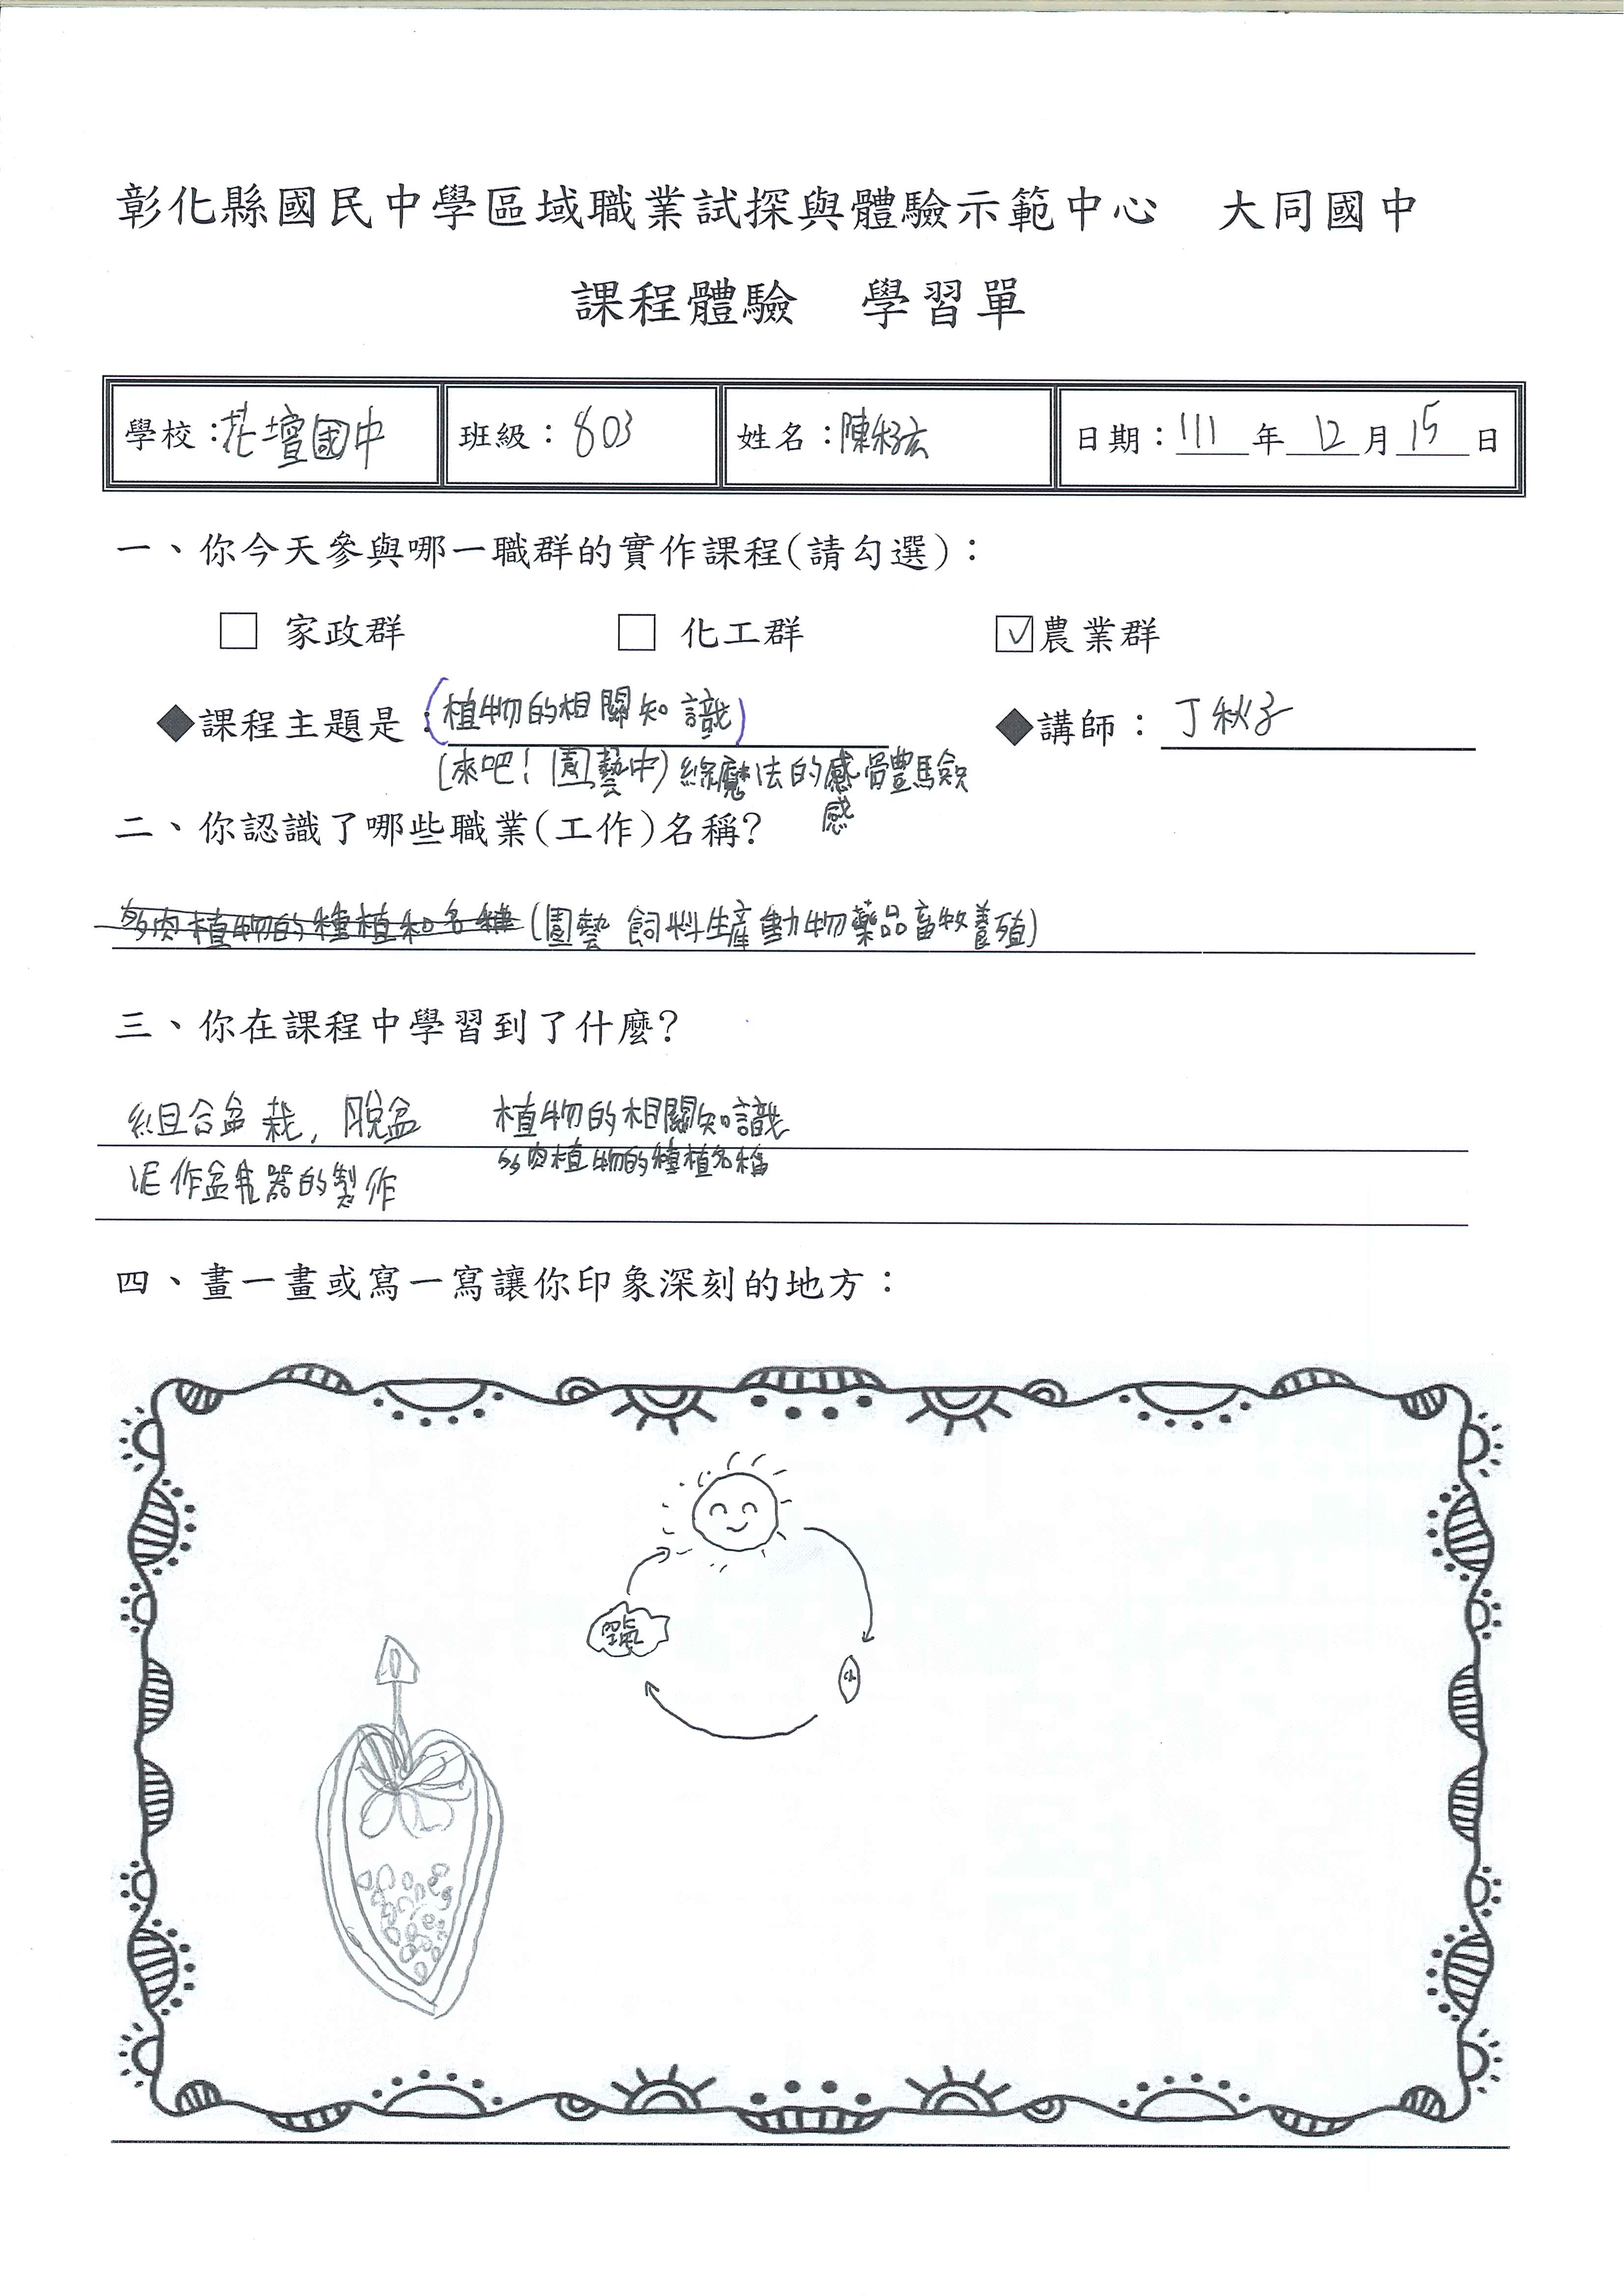 彰化縣國民中學區域職業試探與體驗示範中心 大同國中
課程體驗 學習單
學校：花壇國中 班級：803 姓名：陳 日期：111年12月15日
一、你今天參與哪一職群的實作課程(請勾選)：
□ 家政群 □ 化工群 ☑農業群
◆課程主題是：(植物的相關知識) ◆講師：丁秋子
(來吧！園藝中)綠魔法的感體驗
感
二、你認識了哪些職業(工作)名稱?
多肉植物的種植和名稱(園藝 飼料生產動物藥品畜牧養殖)
三、你在課程中學習到了什麼?
組合盆栽，脫盆 植物的相關知識
多肉植物的種植名稱
泥作盆器的製作
四、畫一畫或寫一寫讓你印象深刻的地方：
空氣